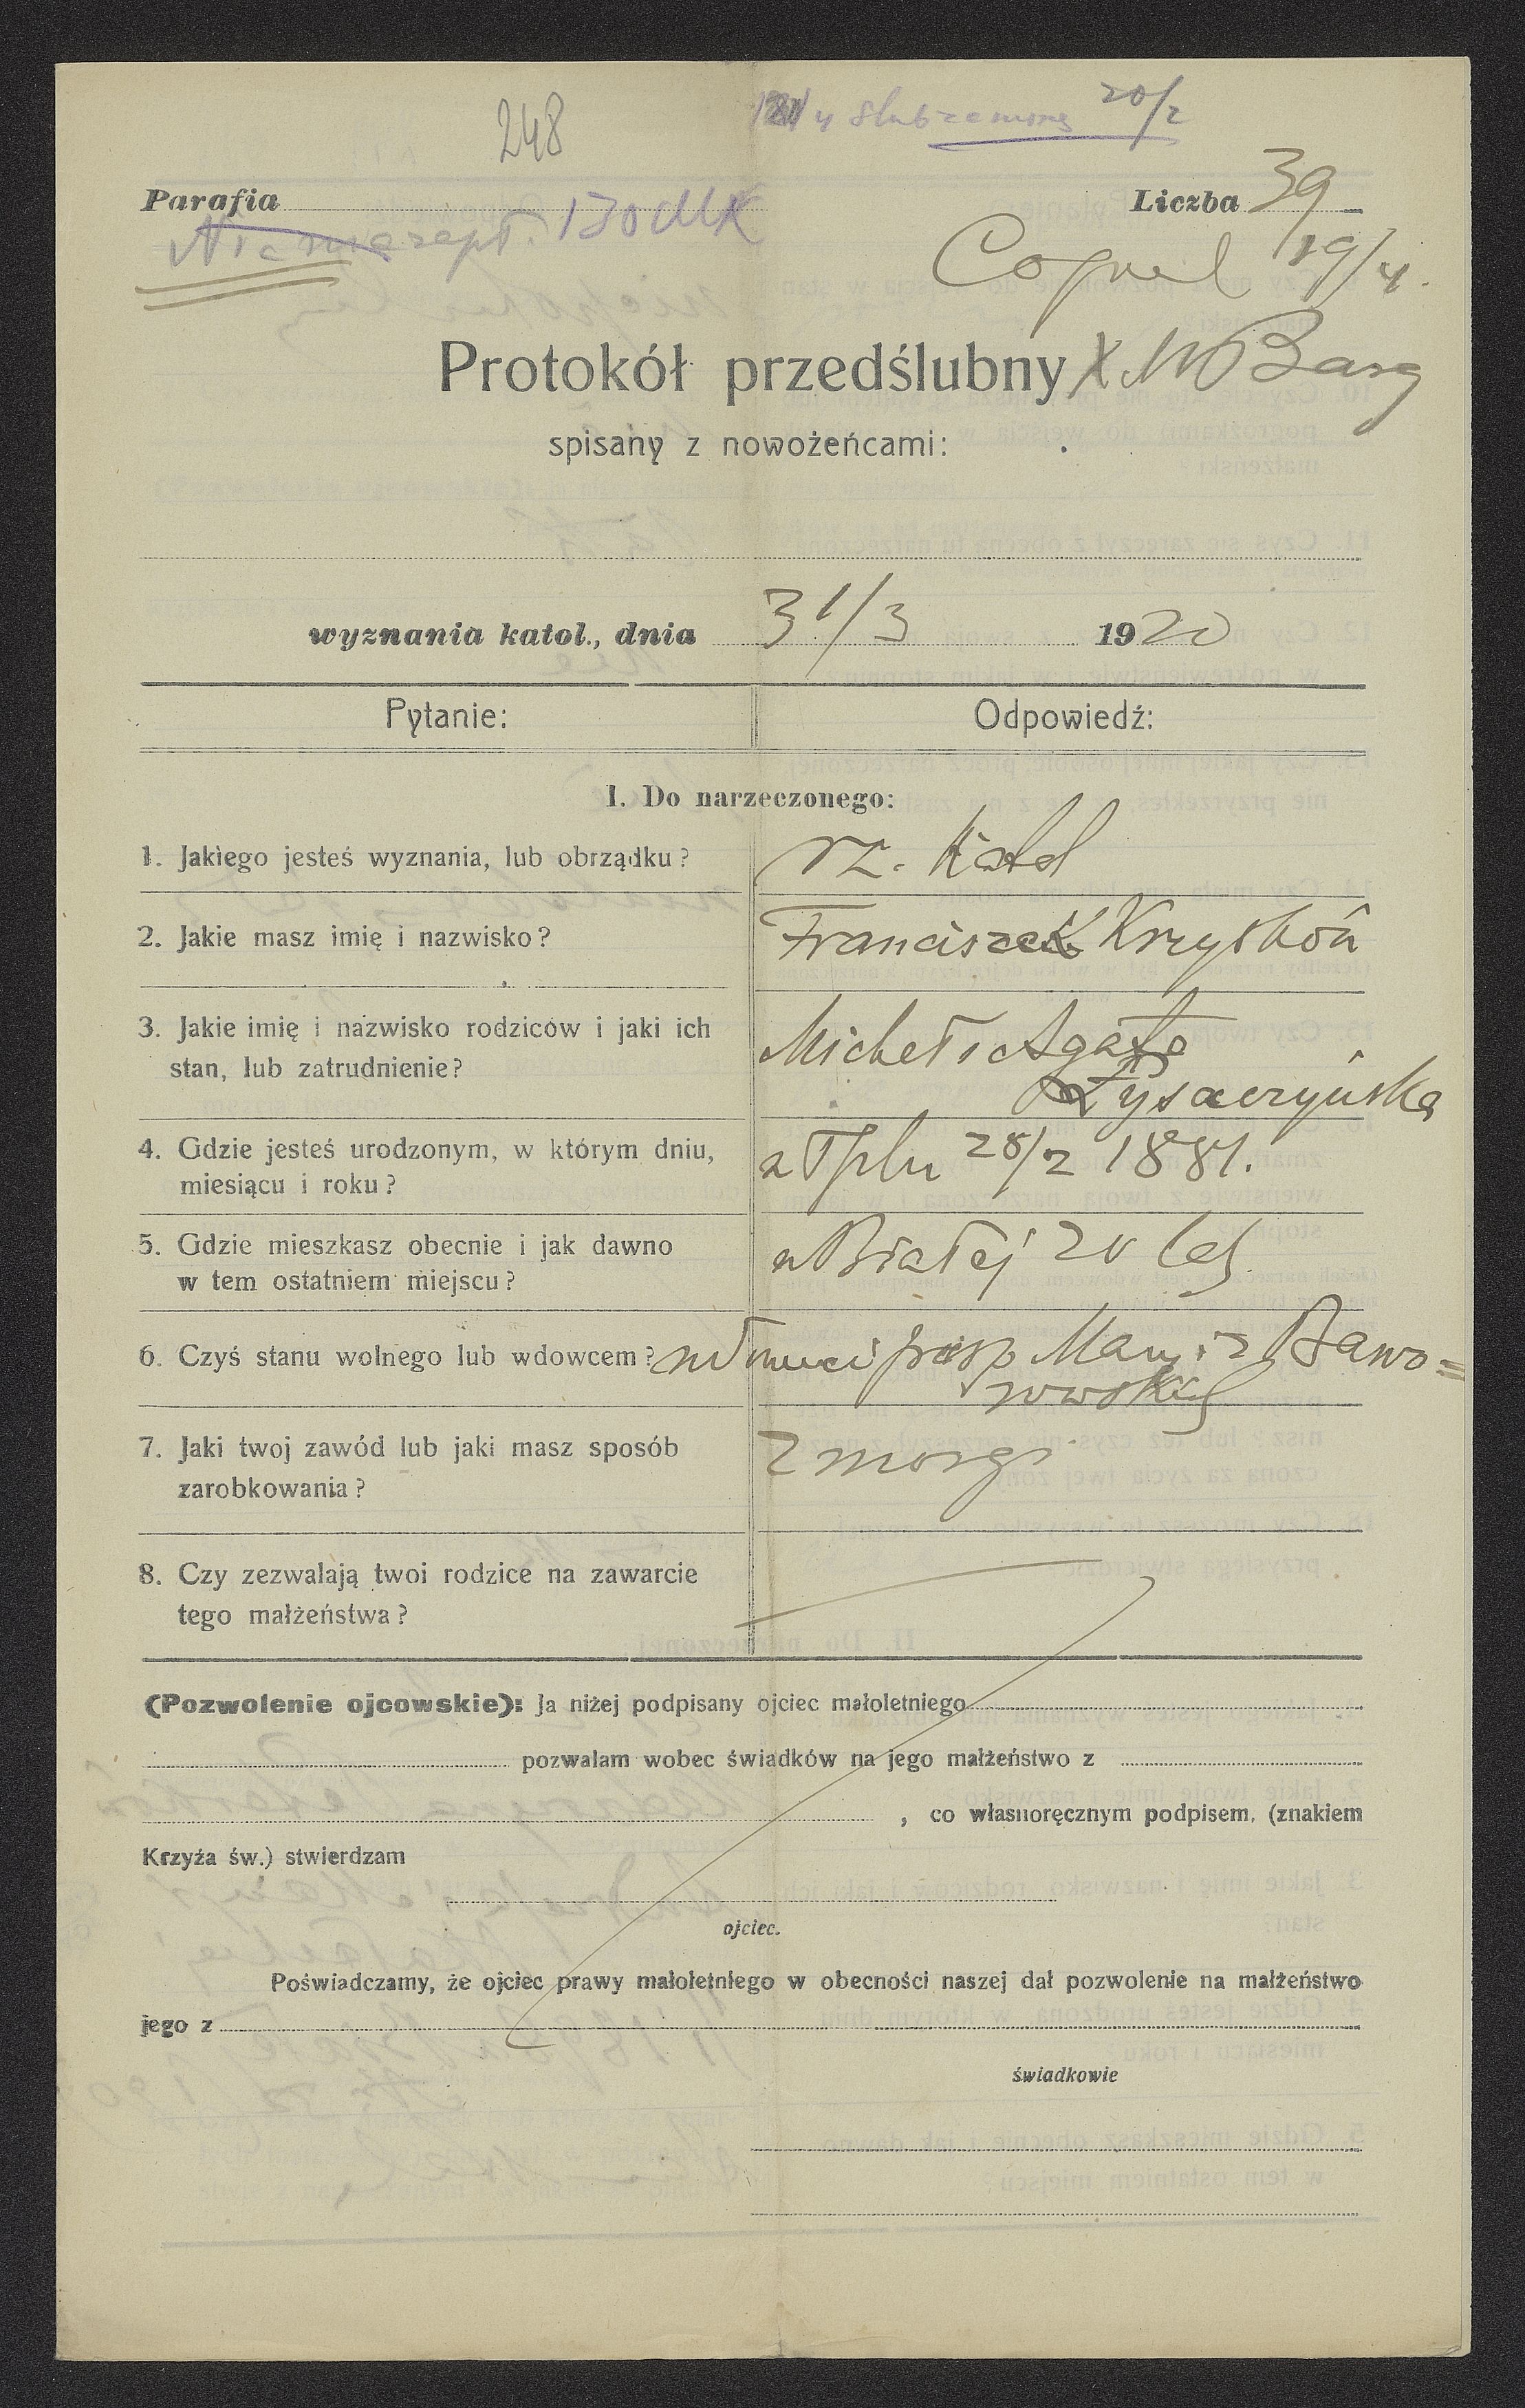 248
20/2
Parafia
Liczba 39
130 MK
19/4.
Protokół przedślubny
spisany z nowożeńcami:
wyznania katol., dnia 31/3 1920
Pytanie:
Odpowiedź:
I. Do narzeczonego:
1. Jakiego jesteś wyznania, lub obrządku?
rz. katol
2. Jakie masz imię i nazwisko?
Franciszek Krzyskoń
3. Jakie imię i nazwisko rodziców i jaki ich
stan, lub zatrudnienie?
Michał i Agata
Łysaczyńska
4. Gdzie jesteś urodzonym, w którym dniu,
miesiącu i roku?
w Tplu 28/2 1881.
5. Gdzie mieszkasz obecnie i jak dawno
w tem ostatniem miejscu?
w Białej 20 lat
6. Czyś stanu wolnego lub wdowcem?
7. Jaki twoj zawód lub jaki masz sposób
zarobkowania?
2 morgi
8. Czy zezwalają twoi rodzice na zawarcie
tego małżeństwa?
(Pozwolenie ojcowskie): Ja niżej podpisany ojciec małoletniego
pozwalam wobec świadków na jego małżeństwo z
, co własnoręcznym podpisem, (znakiem
Krzyża św.) stwierdzam
ojciec.
Poświadczamy, że ojciec prawy małoletniego w obecności naszej dał pozwolenie na małżeństwo
jego z
świadkowie